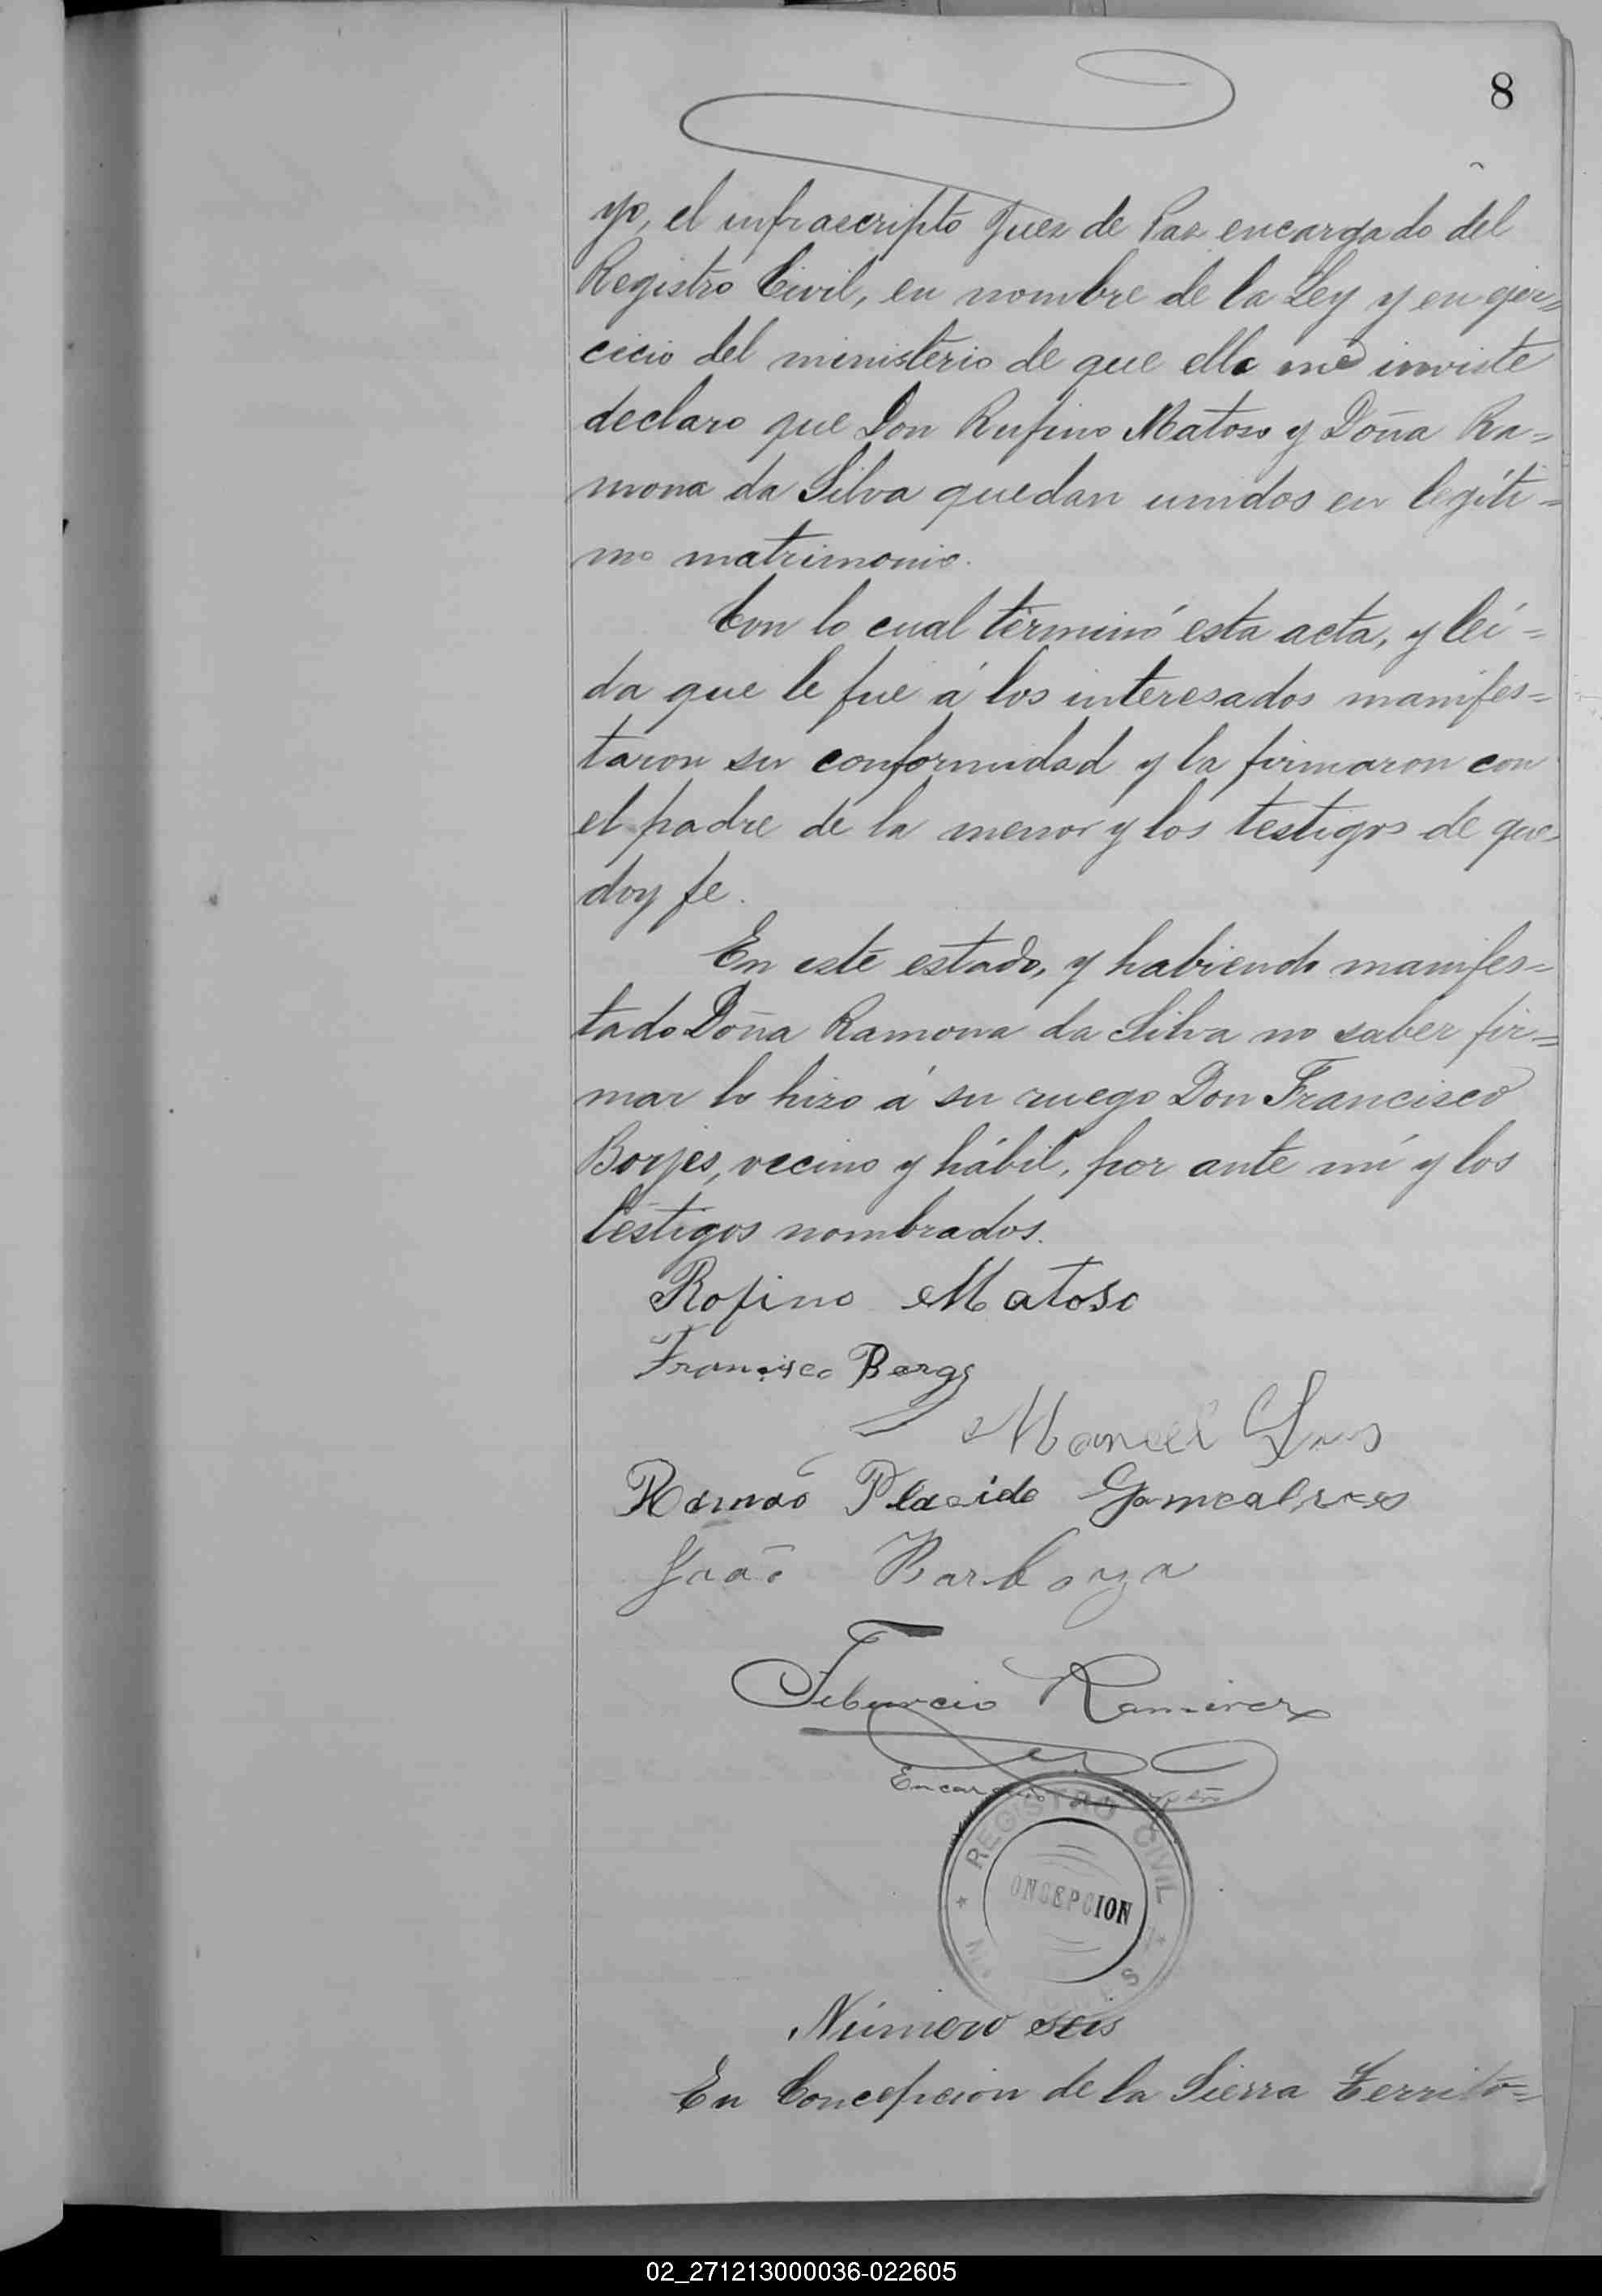 8
yo, el infraescripto Juez de Paz encargado del
Registro Civil, en nombre de la Ley y en ejer=
cicio del ministerio de que ella me inviste
declaro que Don Rufino Matoso y Doña Ra=
mona da Silva quedan unidos en legíti=
mo matrimonio.
Con lo cual terminó esta acta, y leí=
da que le fue á los interesados manifes=
taron su conformidad y la firmaron con
el padre de la menor y los testigos de que
doy fe.
En este estado, y habiendo manifes=
tado Doña Ramona da Silva no saber fir=
mar lo hizo á su ruego Don Francisco
Borjes, vecino y hábil, por ante mí y los
testigos nombrados.
Rofino Matoso
Francisco Borgs
Manuel
Ramão Placido Goncalves
João Barboza
Tiburcio Ramirez
REGISTRO CIVIL
ONCEPCION
Número seis
En Concepcion de la Sierra Territo=
02_271213000036-022605